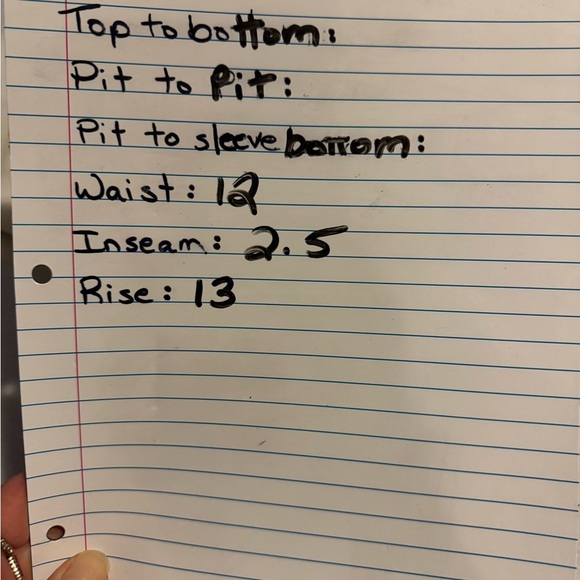 Top to bottom:
Pit to Pit:
Pit to sleeve bottom:
Waist: 12
Inseam: 2.5
Rise: 13